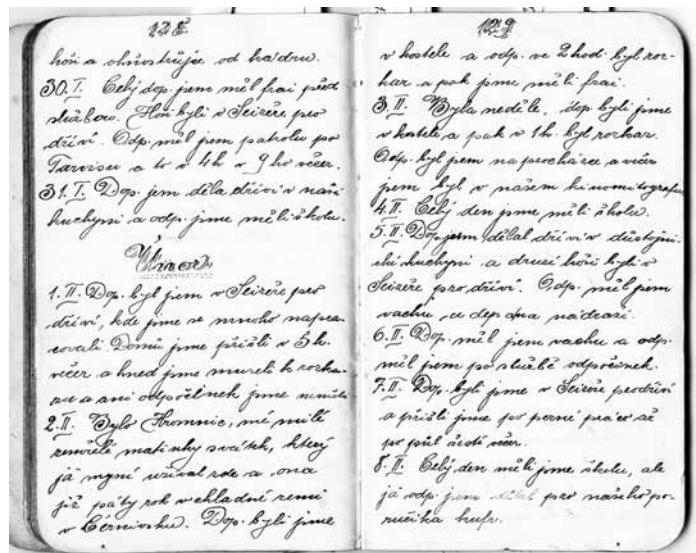 128
hoši a ohňostrůjce od hadru.
30. I. Celý dop. jsem měl frai před
službou. Hoši byli v Seizeře pro
dříví. Odp. měl jsem patrolu po
Tarvisu a to v 4h v 9 ho večer.
31. I. Dop. jsem děla dříví v naší
kuchyni a odp. jsme měli školu.
Únor
1. II. Dop. byl jsem v Seizeře pro
dříví, kde jsme se mnoho napra-
covali. Domů jsme přišli v 5 h.
večer a hned jsme museli k rozka-
zu a ani odpočinek jsme neměli
2. II. Bylo Hromnic, mé milé
zemřelé matinky svátek, který
já nyní užíval zde a ona
již pátý rok v chladné zemi
v Černivsku. Dop. byli jsme
129
v kostele a odp. ve 2 hod. byl roz-
kaz a pak jsme měli frai.
3. II. Byla neděle, dop. byli jsme
v kostele a pak v 1 h. byl rozkaz.
Odp. byl jsem na procházce a večer
jsem byl v našem kinomitografu
4. II. Celý den jsme měli školu.
5. II. Dop. jsem dělal dříví v důstojni-
cké kuchyni a druzí hoši byli v
Seizeře pro dříví. Odp. měl jsem
vachu, u dep na nádraží.
6. II. Dop. měl jsem vachu a odp.
měl jsem po službě odpočinek.
7. II. Dop. byli jsme v Seizeře pro dříví
a přišli jsme po perné práci až
po půl šesté večer.
8. II. Celý den měli jsme školu, ale
já odp. jsem dělal pro našeho po-
ručíka kufr.